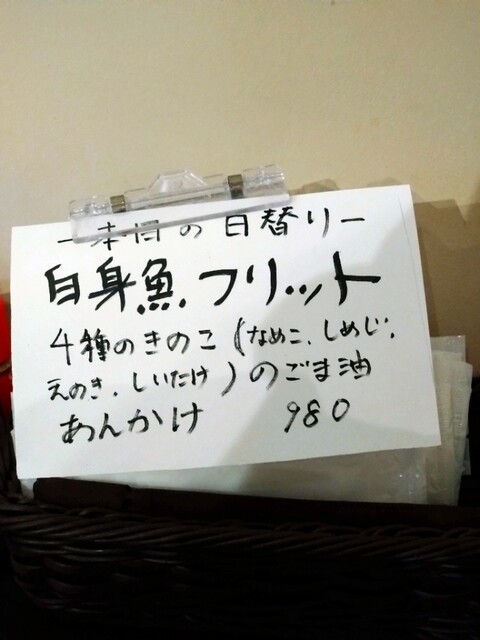 ー本日の日替りー
白身魚.フリット
4種のきのこ(なめこ、しめじ、
えのき、しいたけ)のごま油
あんかけ 980